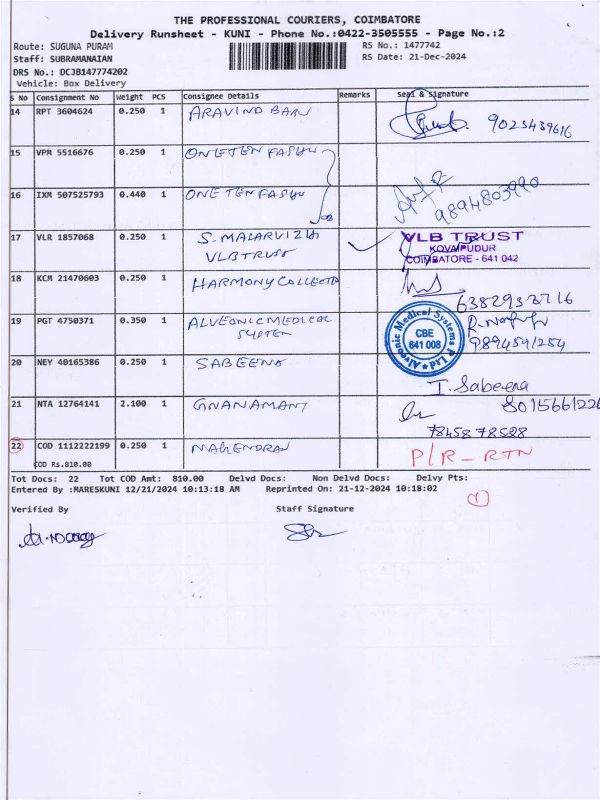 THE PROFESSIONAL COURIERS, COIMBATORE
Delivery Runsheet - KUNI - Phone No.:0422-3505555 - Page No.:2
Route: SUGUNA PURAM RS No.: 1477742
Staff: SUBRAMANAIAN RS Date: 21-Dec-2024
DRS No.: DCJB147774202
Vehicle: Box Delivery
S No Consignment No Weight PCS Consignee Details Remarks Seal & Signature
14 RPT 3604624 0.250 1 ARAVIND 9023439616
15 VPM 5516676 0.250 1 ONE TEN
16 IXM 507525793 0.440 1 ONE TEN 9894803990
17 VLR 1857068 0.250 1 S. MALARVIZHI
VLB TRUST
VLB TRUST
KOVAIPUDUR
COIMBATORE - 641 042
18 KCM 21470603 0.250 1 HARMONY
19 PGT 4750371 0.350 1 MEDICAL
SYSTEM
Alveonic Medical Systems P Ltd
CBE
641 008
9894591254
20 NEY 40165386 0.250 1 SABEENA
I. Sabeena
21 NTA 12764141 2.100 1 GNANAMANI 8015661226
78458 78528
22 COD 1112222199 0.250 1 MAHENDRAN P/R - RTN
COD Rs.810.00
Tot Docs: 22 Tot COD Amt: 810.00 Delvd Docs: Non Delvd Docs: Delvy Pts:
Entered By :MARESKUNI 12/21/2024 10:13:18 AM Reprinted On: 21-12-2024 10:18:02
1
Verified By Staff Signature